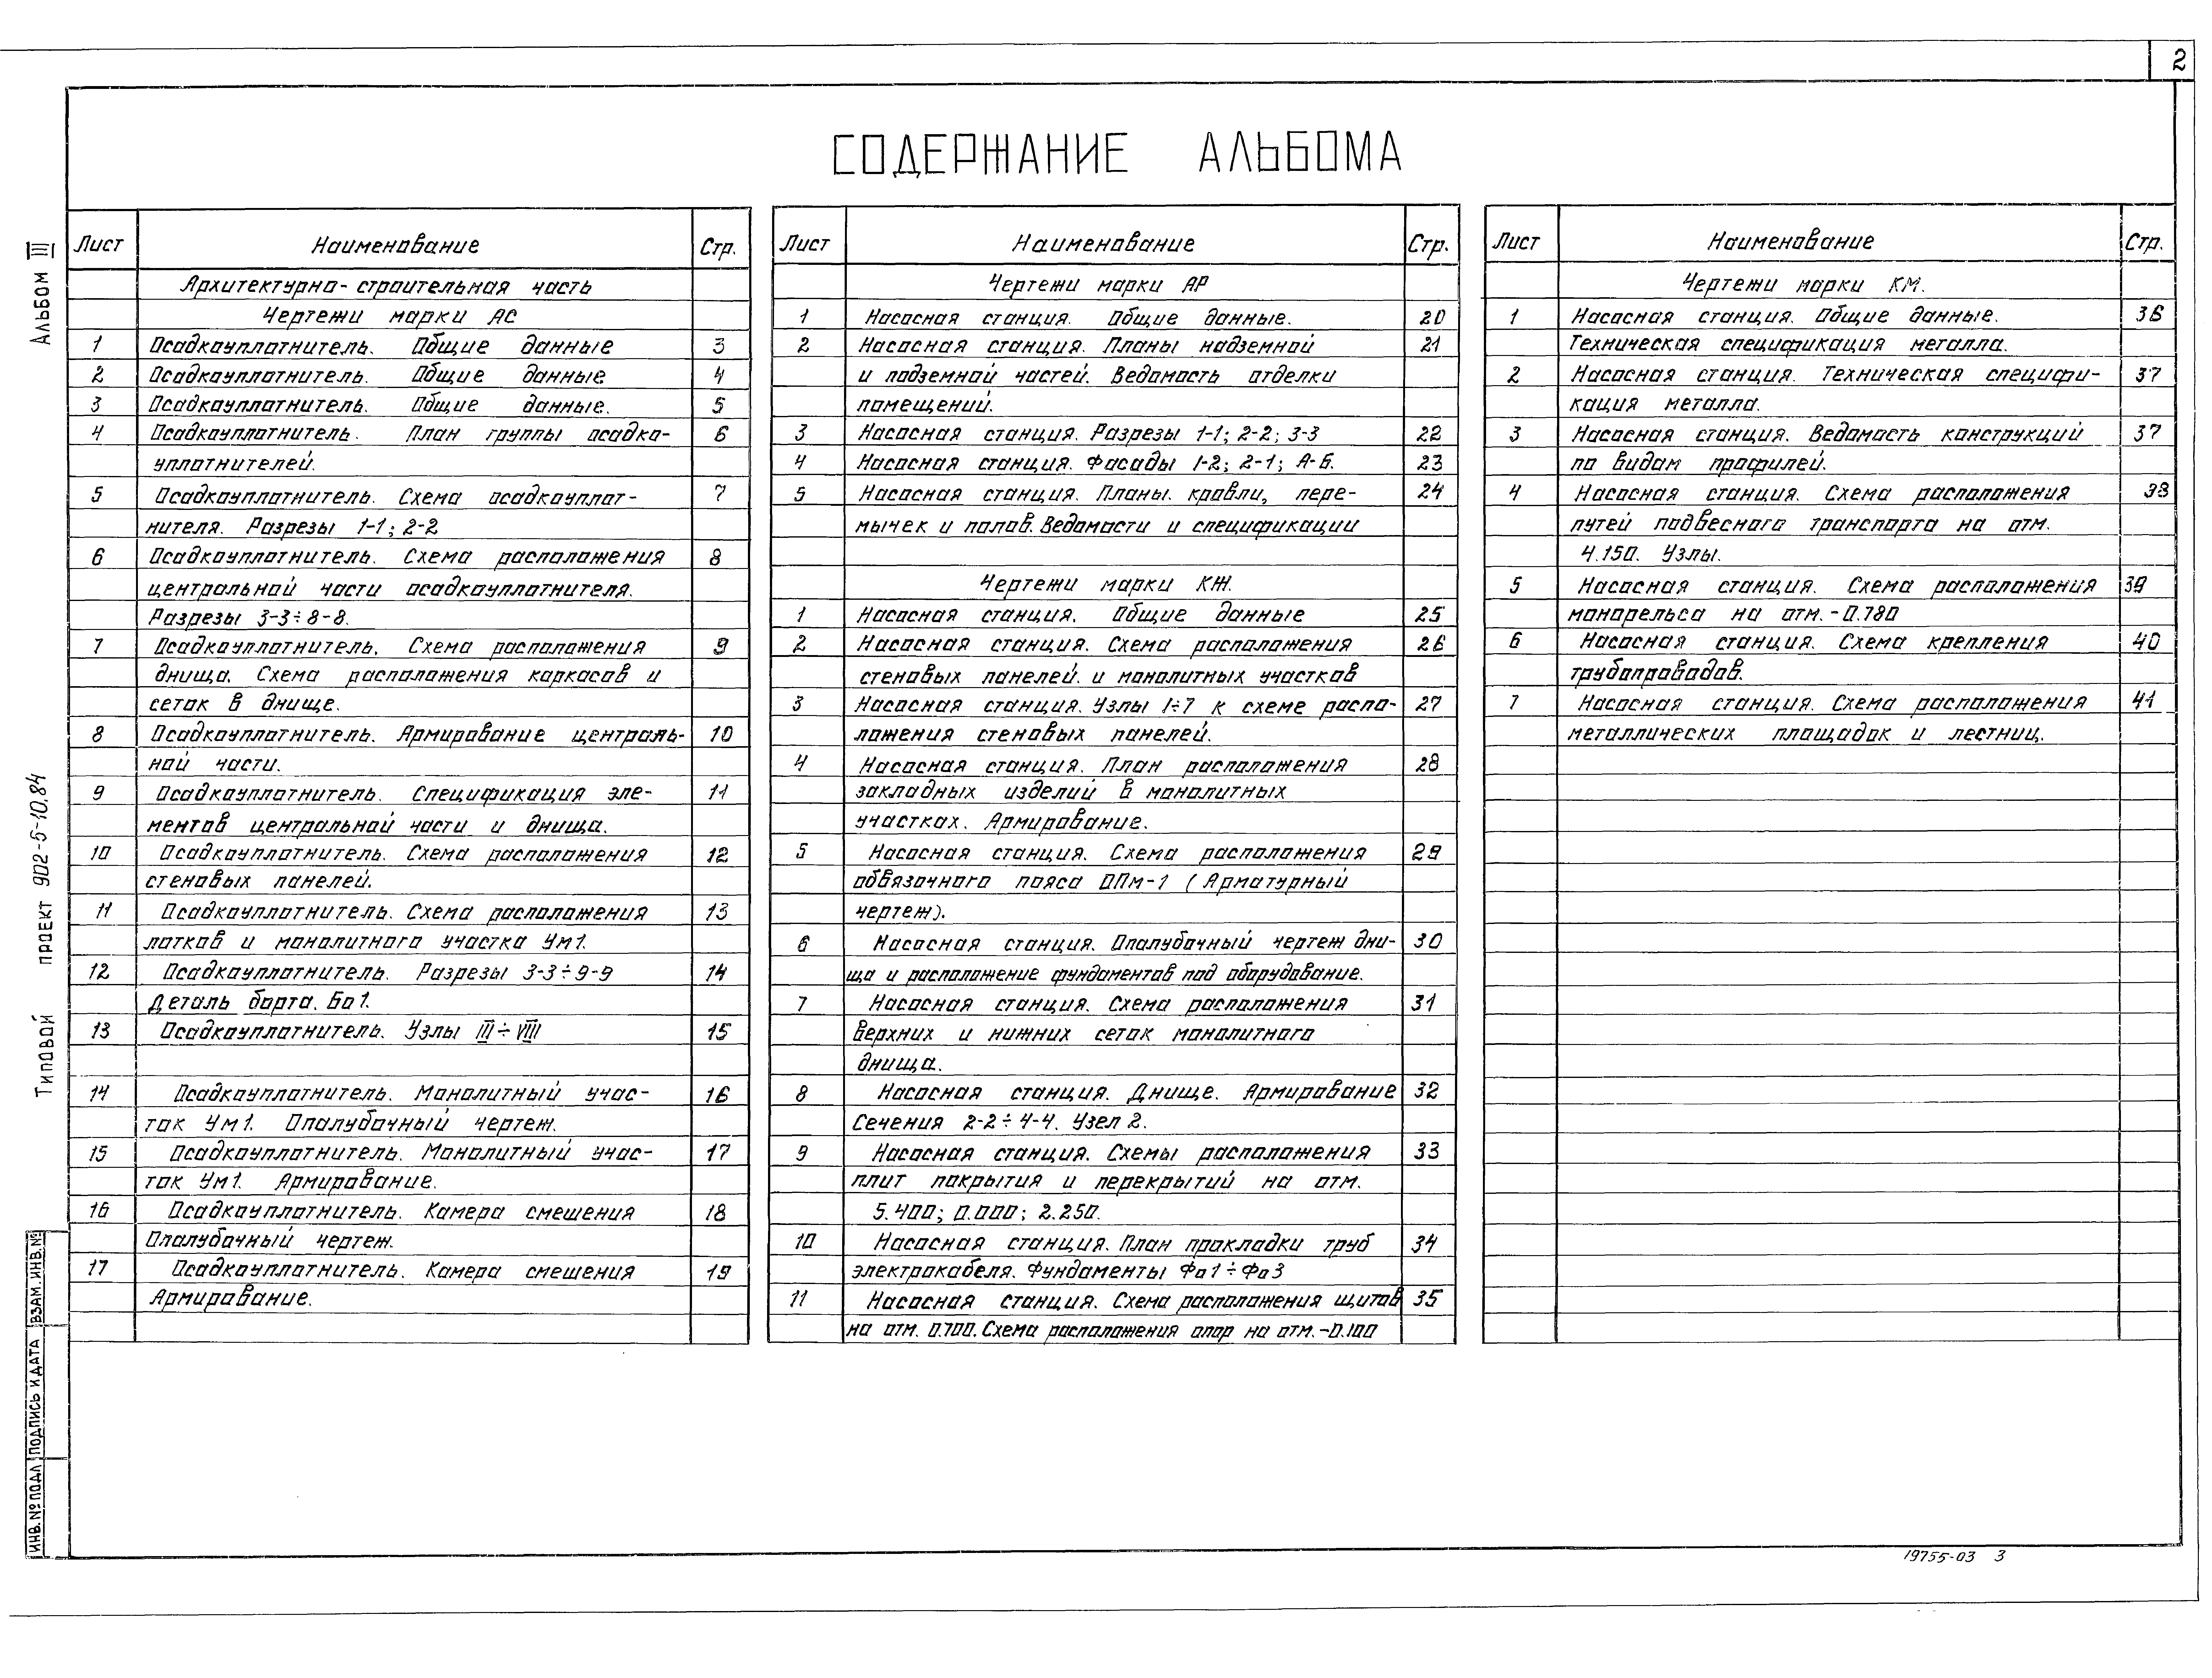 2
СОДЕРЖАНИЕ АЛЬБОМА
Альбом III
Типовой проект 902-5-10.84
Лист Наименование Стр.
Архитектурно-строительная часть
Чертежи марки АС
1 Осадкоуплотнитель. Общие данные 3
2 Осадкоуплотнитель. Общие данные 4
3 Осадкоуплотнитель. Общие данные. 5
4 Осадкоуплотнитель. План группы осадко- 6
уплотнителей.
5 Осадкоуплотнитель. Схема осадкоуплот- 7
нителя. Разрезы 1-1; 2-2
6 Осадкоуплотнитель. Схема расположения 8
центральной части осадкоуплотнителя.
Разрезы 3-3÷8-8.
7 Осадкоуплотнитель. Схема расположения 9
днища. Схема расположения каркасов и
сеток в днище.
8 Осадкоуплотнитель. Армирование централь- 10
ной части.
9 Осадкоуплотнитель. Спецификация эле- 11
ментов центральной части и днища.
10 Осадкоуплотнитель. Схема расположения 12
стеновых панелей.
11 Осадкоуплотнитель. Схема расположения 13
лотков и монолитного участка Ум1.
12 Осадкоуплотнитель. Разрезы 3-3÷9-9 14
Деталь борта. Бо1.
13 Осадкоуплотнитель. Узлы III÷VIII 15
14 Осадкоуплотнитель. Монолитный учас- 16
ток Ум1. Опалубочный чертеж.
15 Осадкоуплотнитель. Монолитный учас- 17
ток Ум1. Армирование.
16 Осадкоуплотнитель. Камера смешения 18
Опалубочный чертеж.
17 Осадкоуплотнитель. Камера смешения 19
Армирование.
Лист Наименование Стр.
Чертежи марки АР
1 Насосная станция. Общие данные. 20
2 Насосная станция. Планы надземной 21
и подземной частей. Ведомость отделки
помещений.
3 Насосная станция. Разрезы 1-1; 2-2; 3-3 22
4 Насосная станция. Фасады 1-2; 2-1; А-Б. 23
5 Насосная станция. Планы. кровли, пере- 24
мычек и полов. Ведомости и спецификации
Чертежи марки КЖ.
1 Насосная станция. Общие данные 25
2 Насосная станция. Схема расположения 26
стеновых панелей. и монолитных участков
3 Насосная станция. Узлы 1÷7 к схеме распо- 27
ложения стеновых панелей.
4 Насосная станция. План расположения 28
закладных изделий в монолитных
участках. Армирование.
5 Насосная станция. Схема расположения 29
обвязочного пояса ОПм-1 (Арматурный
чертеж).
6 Насосная станция. Опалубочный чертеж дни- 30
ща и расположение фундаментов под оборудование.
7 Насосная станция. Схема расположения 31
верхних и нижних сеток монолитного
днища.
8 Насосная станция. Днище. Армирование 32
Сечения 2-2÷4-4. Узел 2.
9 Насосная станция. Схемы расположения 33
плит покрытия и перекрытий на отм.
5.400; 0.000; 2.250.
10 Насосная станция. План прокладки труб 34
электрокабеля. Фундаменты Фо1÷Фо3
11 Насосная станция. Схема расположения щитов 35
на отм. 0.700. Схема расположения опор на отм. -0.100
Лист Наименование Стр.
Чертежи марки КМ.
1 Насосная станция. Общие данные. 36
Техническая спецификация металла.
2 Насосная станция. Техническая специфи- 37
кация металла.
3 Насосная станция. Ведомость конструкций 37
по видам профилей.
4 Насосная станция. Схема расположения 38
путей подвесного транспорта на отм.
4.150. Узлы.
5 Насосная станция. Схема расположения 39
монорельса на отм. -0.780
6 Насосная станция. Схема крепления 40
трубопроводов.
7 Насосная станция. Схема расположения 41
металлических площадок и лестниц.
ИНВ. № ПОДЛ ПОДПИСЬ И ДАТА ВЗАМ. ИНВ. №
19755-03 3